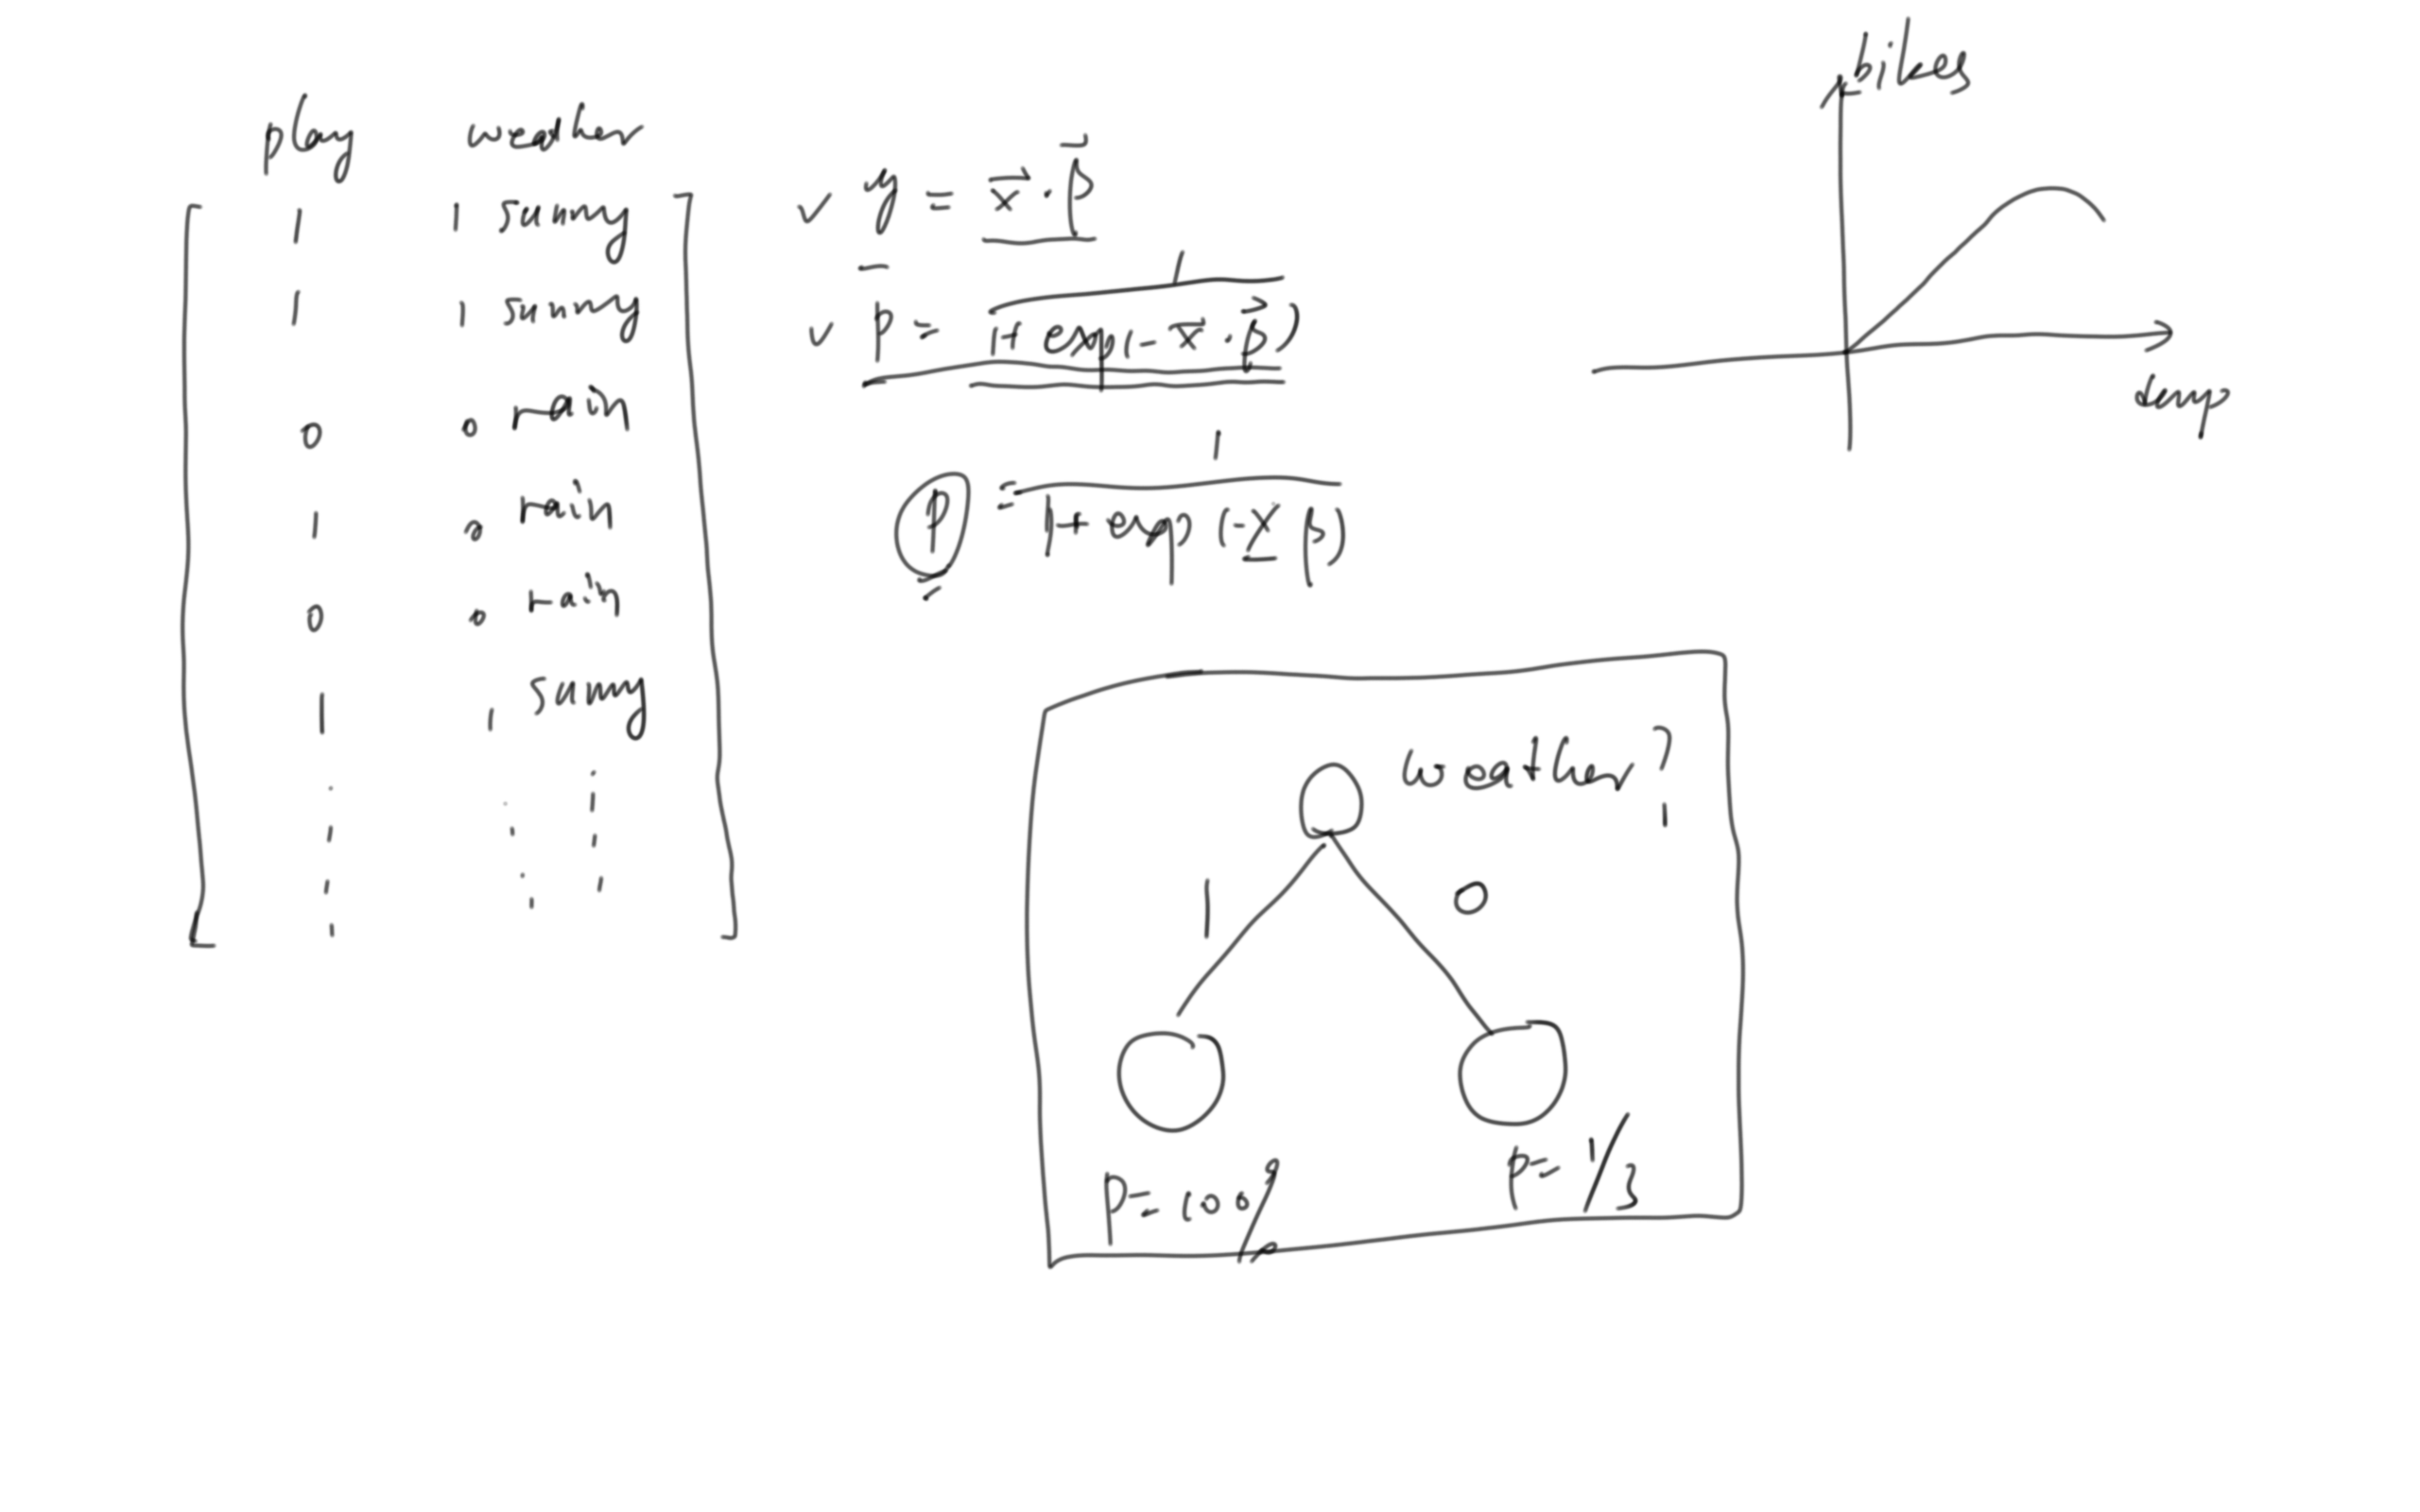 play weather
1 1 sunny
1 1 sunny
0 0 rain
1 0 rain
0 0 rain
1 1 sunny
y = x · β
p = 1 / 1 + exp(- x · β)
p = 1 / 1 + exp (-x β)
bikes
temp
weather?
1 0
p = 100%
p = 1/3